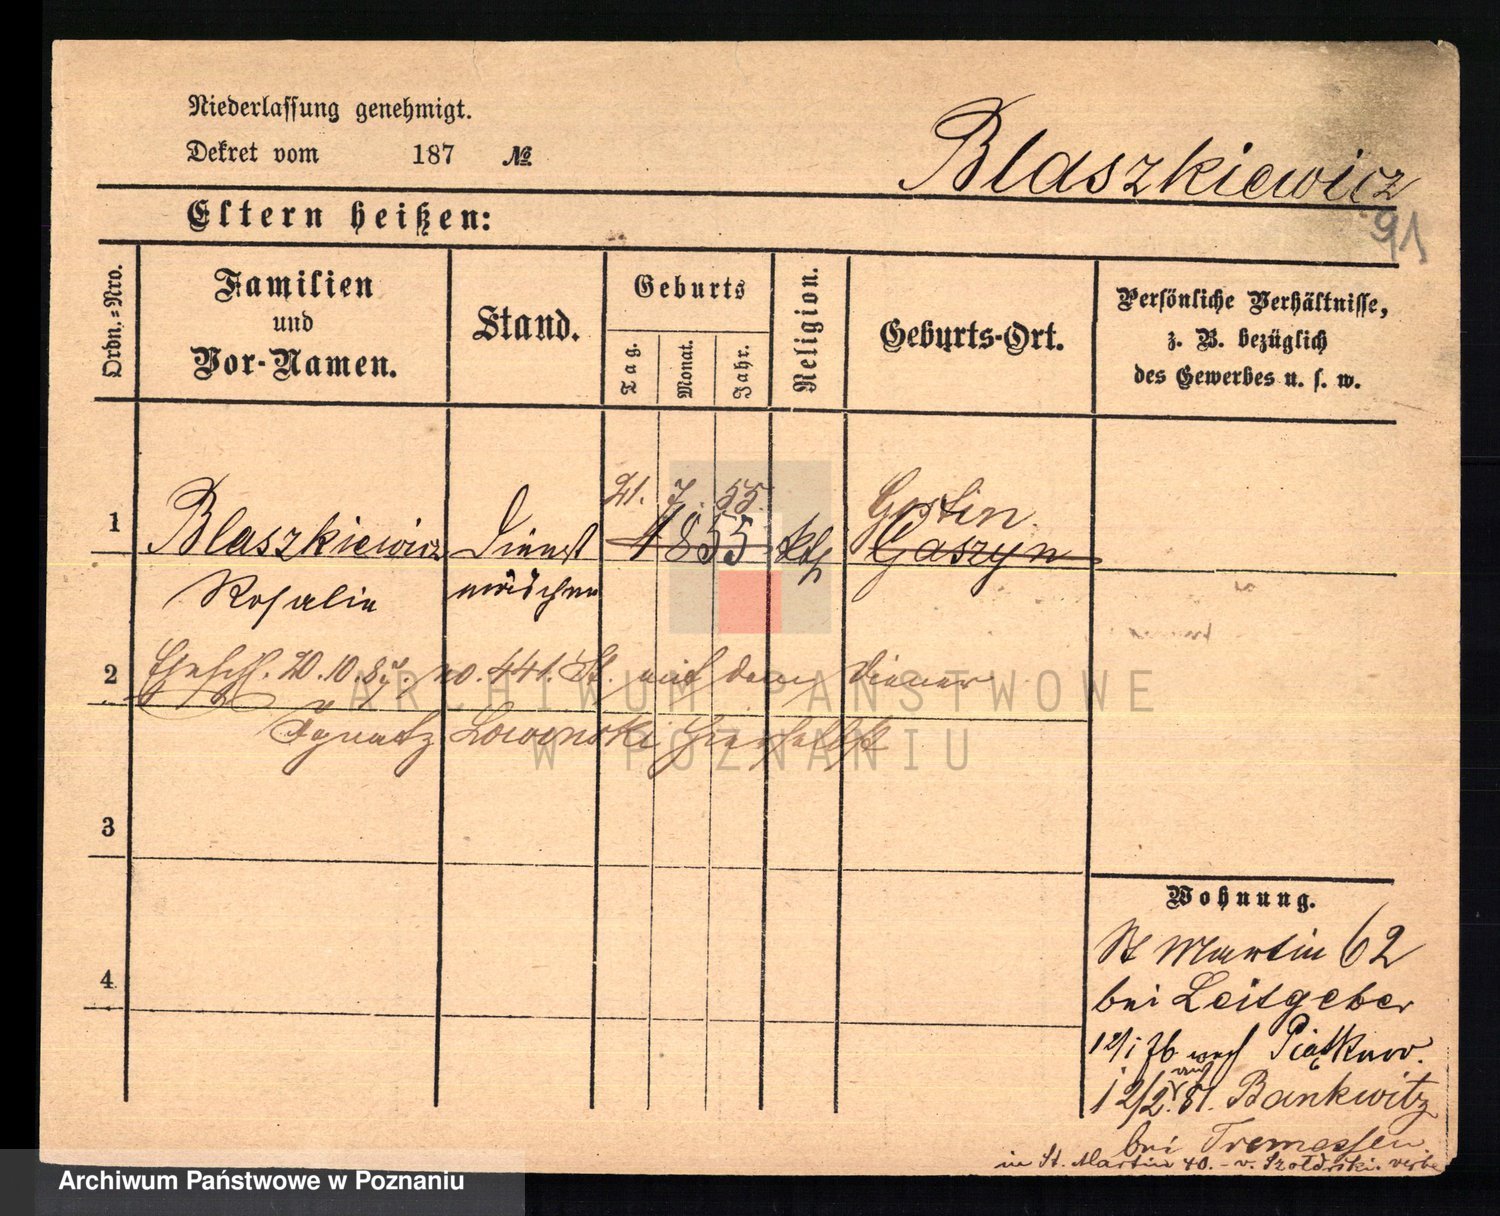 Niederlassung genehmigt.
Dekret vom 187 №
Blaszkiewicz
91
Eltern heißen:
Ordn.=Nro.
Familien
und
Vor-Namen.
Stand.
Geburts
Tag.
Monat.
Jahr.
Religion.
Geburts-Ort.
Persönliche Verhältnisse,
z. B. bezüglich
des Gewerbes u. s. w.
21. 7. 55. Gostin.
1 Blaszkiewicz Dienst 1855 kth Gaszyn
Rosalie mädchen
2 Eheschl. 20.10.84 no. 441. St. mit dem Diener
Ignatz hierselbst
3
4
Wohnung.
St Martin 62
bei Leitgeber
12/1 76 nach
12/2. 81. Bankwitz
bei Tremessen
in St. Martin 40. - v.
ARCHIWUM PAŃSTWOWE
W POZNANIU
Archiwum Państwowe w Poznaniu